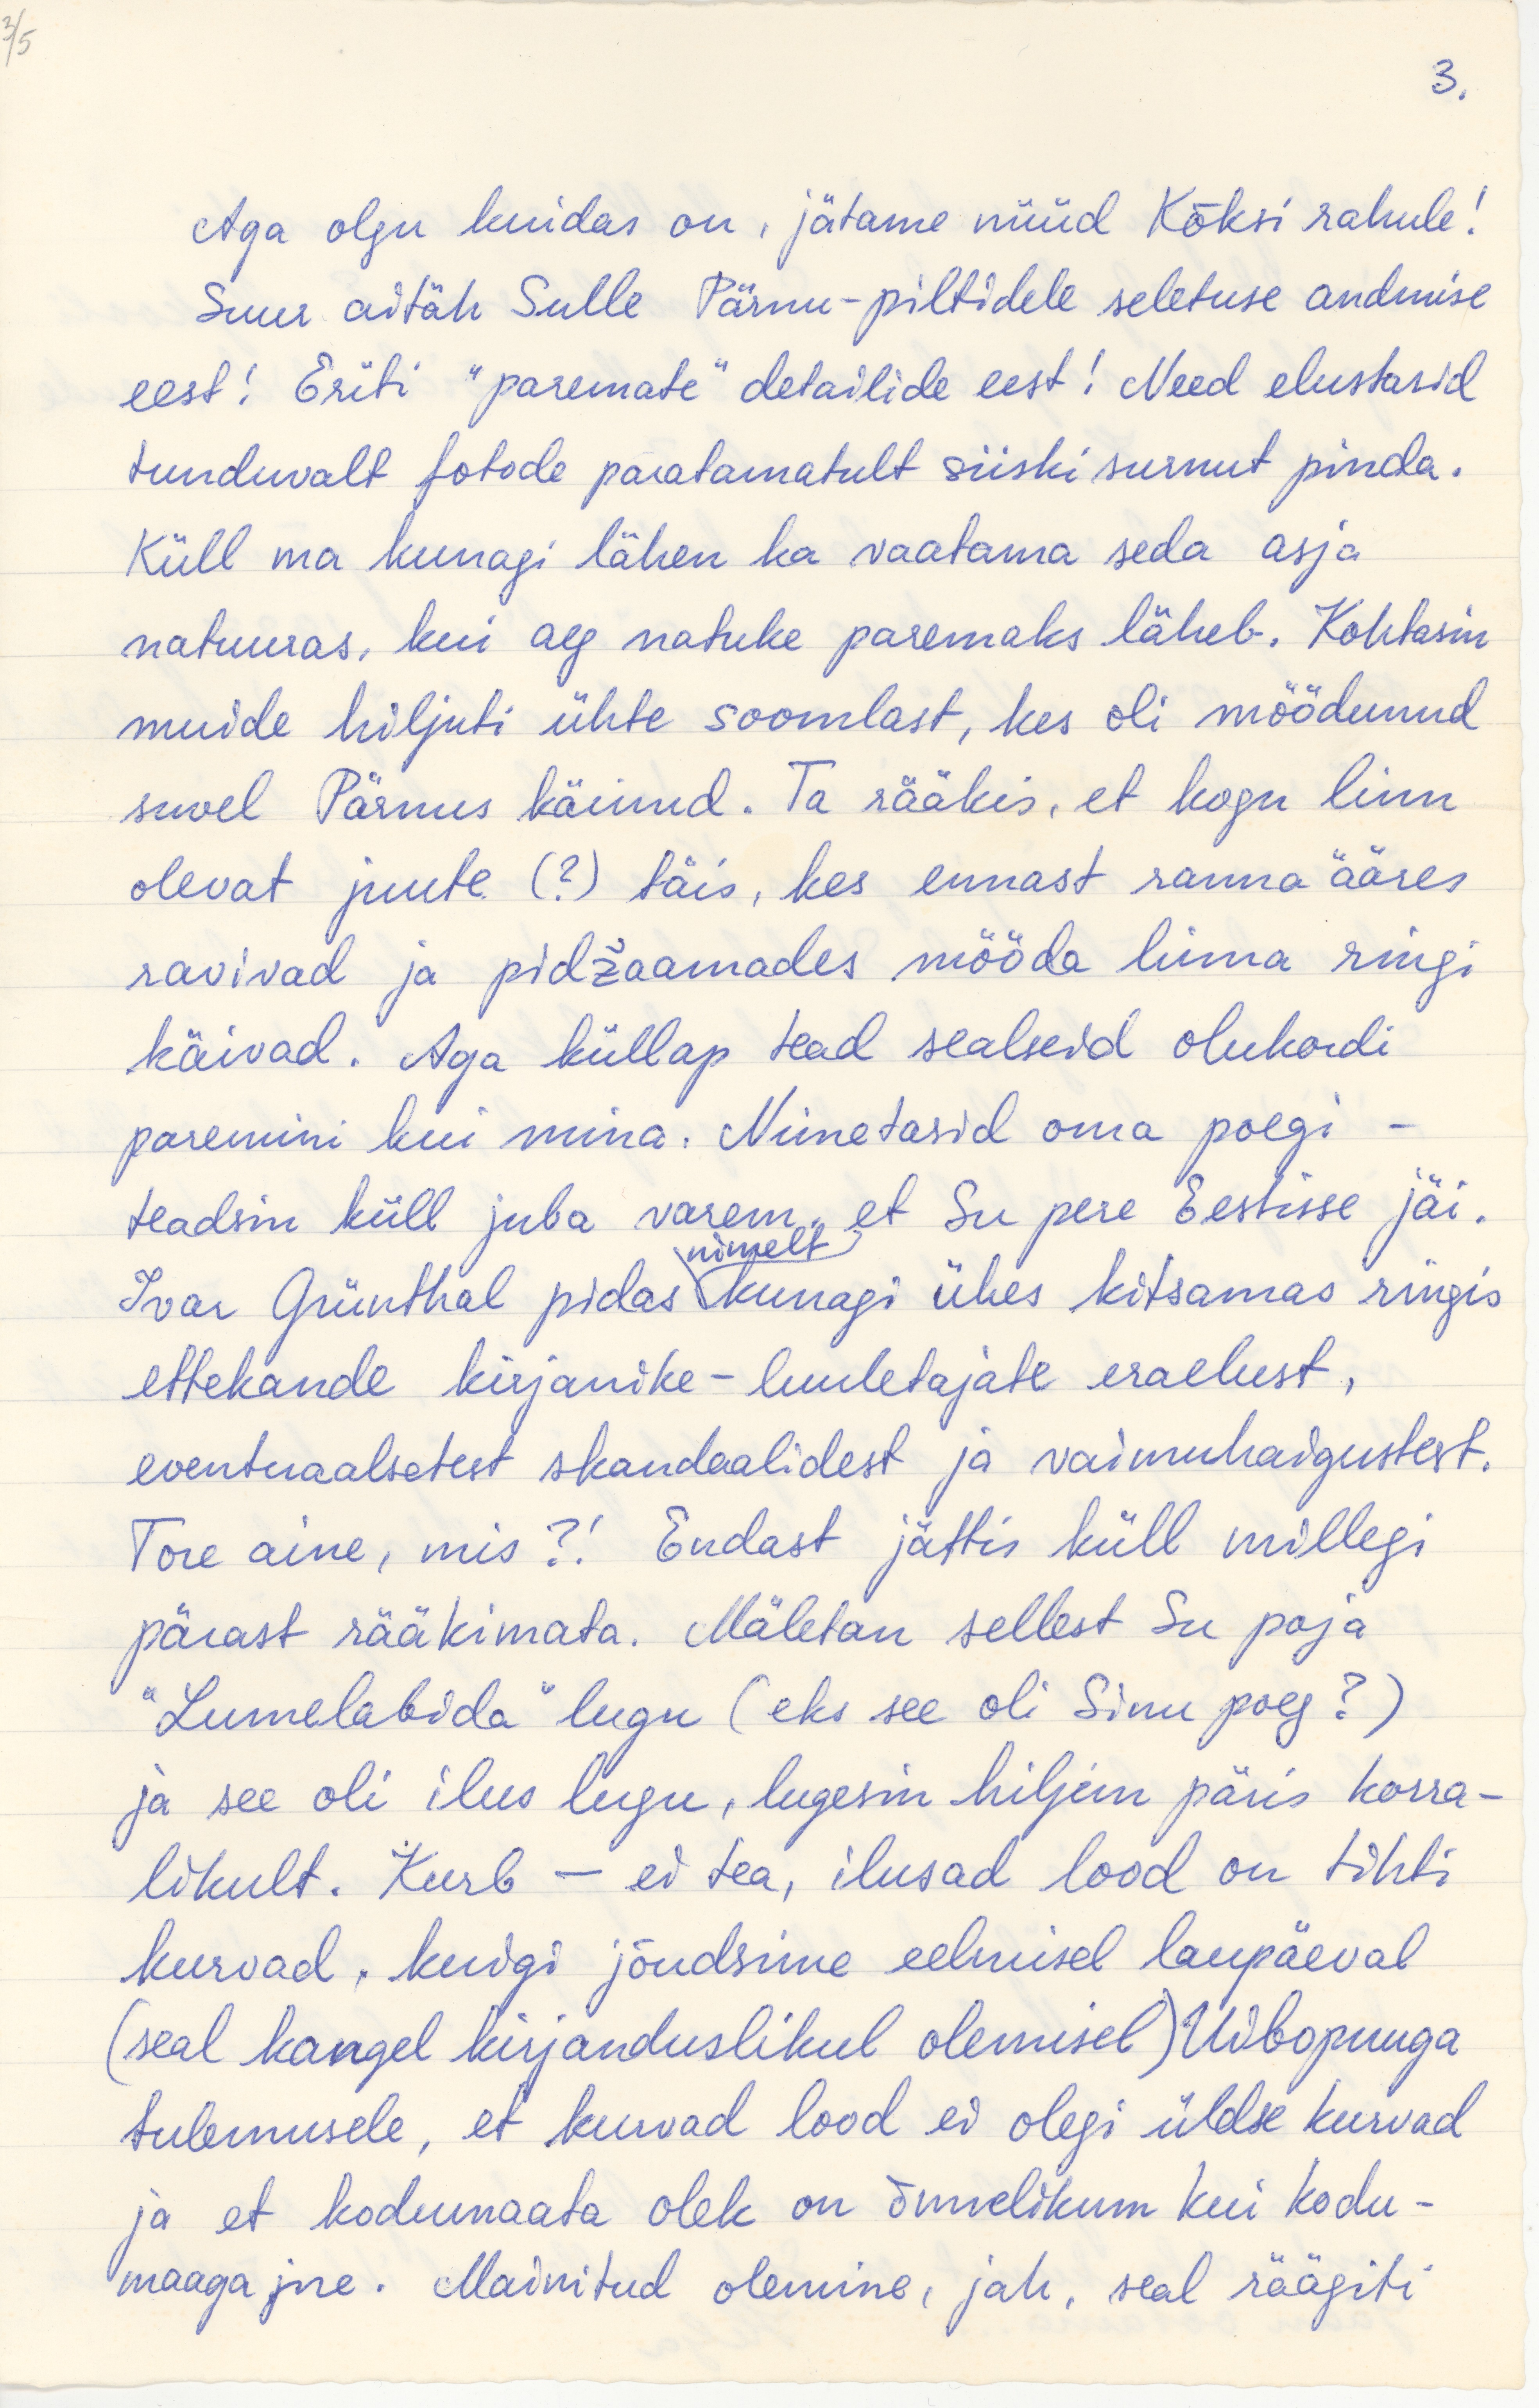 3/5
3.
Aga olgu kuidas on, jätame nüüd Kõksi rahule!
Suur aitäh Sulle Pärnu-piltidele seletuse andmise
eest! Eriti "paremate" detailide eest! Need elustasid
tunduvalt fotode paratamatult siiski surnut pinda.
Küll ma kunagi lähen ka vaatama seda asja
natuuras, kui aeg natuke paremaks läheb. Kohtasin
muide hiljuti ühte soomlast, kes oli möödunud
suvel Pärnus käinud. Ta rääkis, et kogu linn
olevat juute (?) täis, kes ennast ranna ääres
ravivad ja pidžaamades mööda linna ringi
käivad. Aga küllap tead sealseid olukordi
paremini kui mina. Nimetasid oma poegi -
teadsin küll juba varem, et Su pere Eestisse jäi.
nimelt
Ivar Grünthal pidas kunagi ühes kitsamas ringis
ettekande kirjanike-luuletajate eraelust,
eventuaalsetest skandaalidest ja vaimuhaigustest.
Tore aine, mis?! Endast jättis küll millegi
pärast rääkimata. Mäletan sellest Su poja
"Lumelabida" lugu (eks see oli Sinu poeg?)
ja see oli ilus lugu, lugesin hiljem päris korra-
likult. Kurb - ei tea, ilusad lood on tihti
kurvad, kuigi jõudsime eelmisel laupäeval
(seal kangel kirjanduslikul olemisel) Uibopuuga
tulemusele, et kurvad lood ei olegi üldse kurvad
ja et kodumaata olek on õnnelikum kui kodu-
maaga jne. Mainitud olemine, jah, seal räägiti